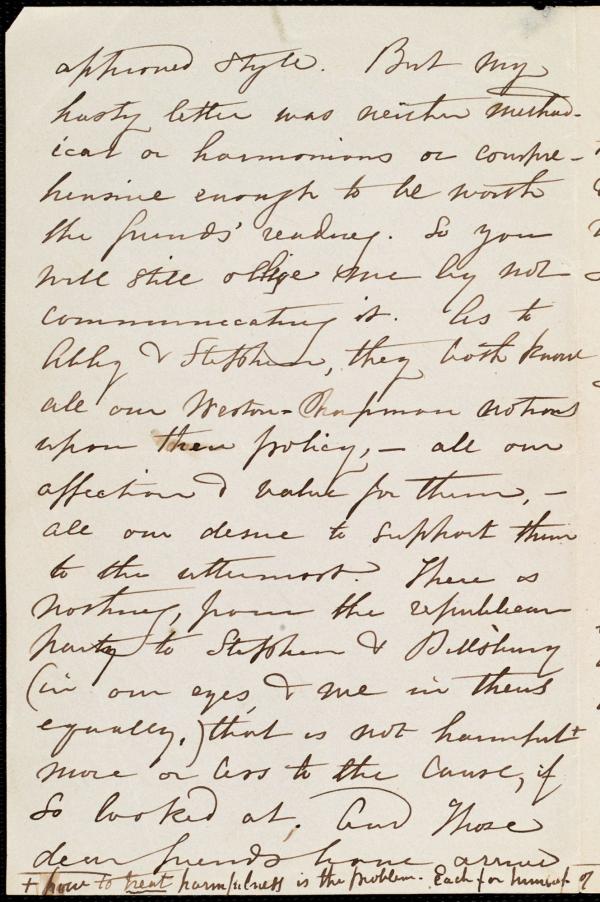 approved style. But my
hasty letter was neither method-
ical or harmonious or compre-
hensive enough to be worth
the friends' reading. So you
will still oblige me by not
communicating it. As to
Abby & Stephen, they both know
all our Weston-Chapman notions
upon their policy, – all our
affection & value for them, –
all our desire to support them
to the uttermost. There is
nothing, from the republican
party to Stephen & Pillsbury
(in our eyes, & we in theirs
equally,) that is not harmful +
more or less to the cause, if
so looked at. And those
dear friends have
+ how to treat harmfulness is the problem. Each for himself